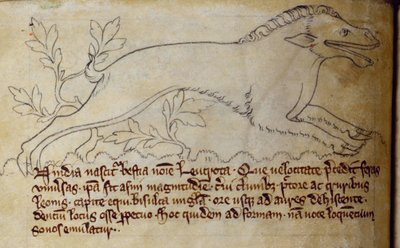 In india nascit᷑ bestia noīe leucrota. Que uelocitate p̄cedit feras
uniu᷑sas. ip̄a est asini magnitudie. c᷑ui clunib; pectore ac cruribus
leonis. capite equi. bisulca ungla. ore usq; ad aures dehiscente.
dentiū locus osse ꝑpetuo. hoc quidem ad formam. nā uoce loquentiū
sonos emulatur.